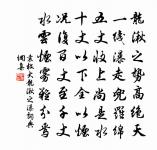 龍湫之勢高絕天
一線瀑走兜羅綿
五丈收上尚是水
十丈以下全以煙
況復百丈至千丈
水雲煙霧難分焉
袁枚大龍湫之瀑詞典
網集